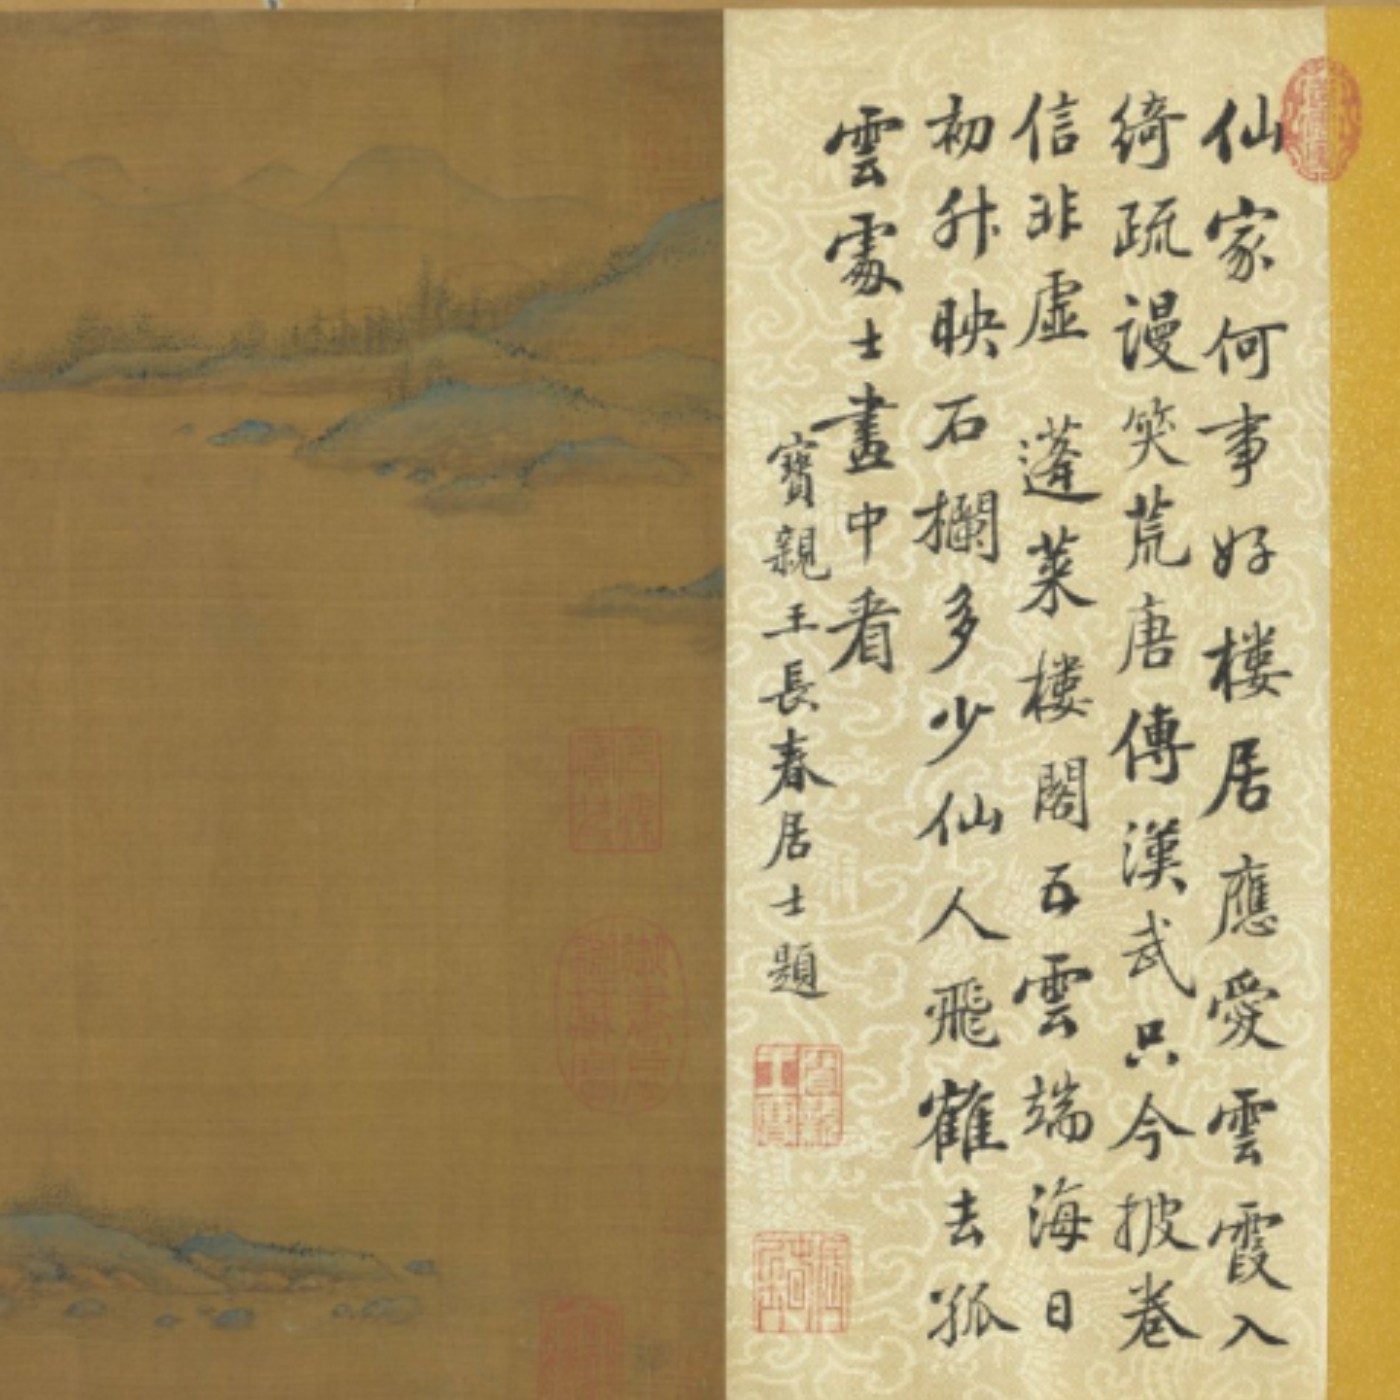 仙家何事好樓居應愛雲霞入
綺疏謾笑荒唐傳漢武只今披卷
信非虛 蓬萊樓閣五雲端海日
初升映石欄多少仙人飛寉去孤
雲處士畫中看
寶親王長春居士題